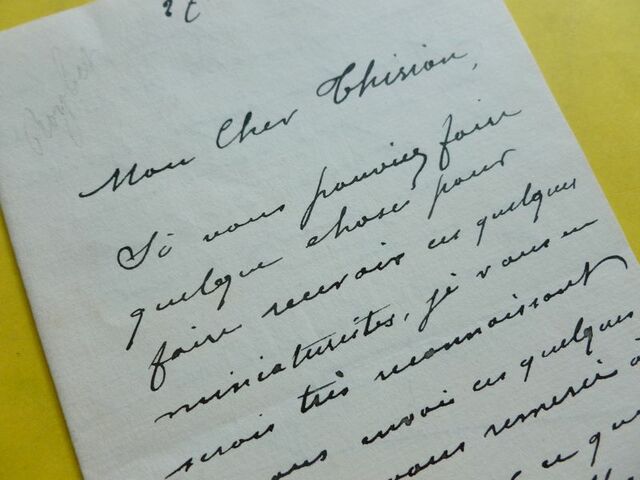 Mon Cher Thision,
Si vous pouviez faire
quelque chose pour
faire recevoir ces quelques
miniaturistes, je vous en
serais très reconnaissant
vous envoie ces quelques
vous remercie à
ce que